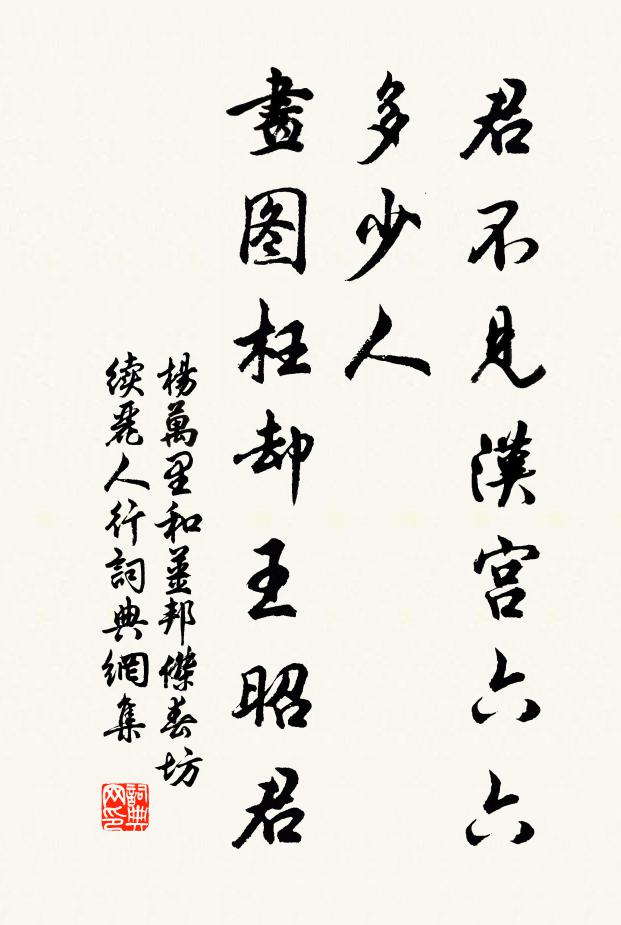 君不見漢宮六六
多少人
畫图枉却王昭君
楊萬里和姜邦傑春坊
續麗人行詞典網集
詞典网印